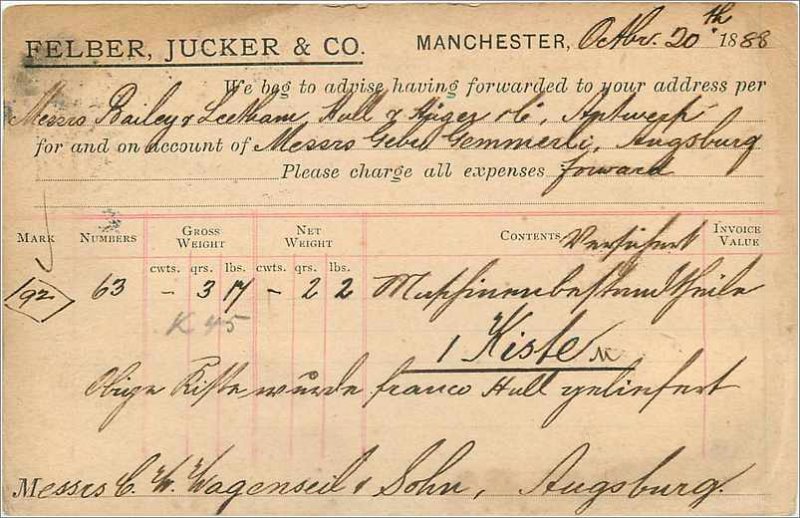 FELBER, JUCKER & CO. MANCHESTER, Octbr. 20th 1888
We beg to advise having forwarded to your address per
Messrs Bailey & Leetham, Hull & Co, Antwerp
for and on account of Messrs Gebr. Gemmerli, Augsburg
Please charge all expenses forward
MARK NUMBERS GROSS WEIGHT NET WEIGHT CONTENTS Versichert INVOICE VALUE
cwts. qrs. lbs. cwts. qrs. lbs.
192 63 – 3 17 – 2 2 Maschinenbestandtheile
K 45
1 Kiste
Obige Kiste wurde franco Hull geliefert
Messrs C. W. Wagenseil & Sohn, Augsburg.